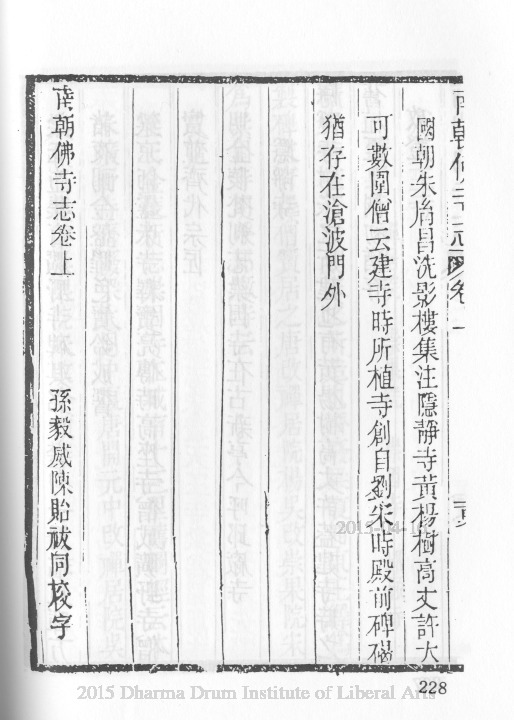 國朝朱𦙍昌洗影樓集注隱靜寺黃楊樹高丈許大
可數圍僧云建寺時所植寺創自劉宋時殿前碑碣
猶存在滄波門外
南朝佛寺志卷上
孫毅威陳貽祓同校字
228
2015 Dharma Drum Institute of Liberal Arts